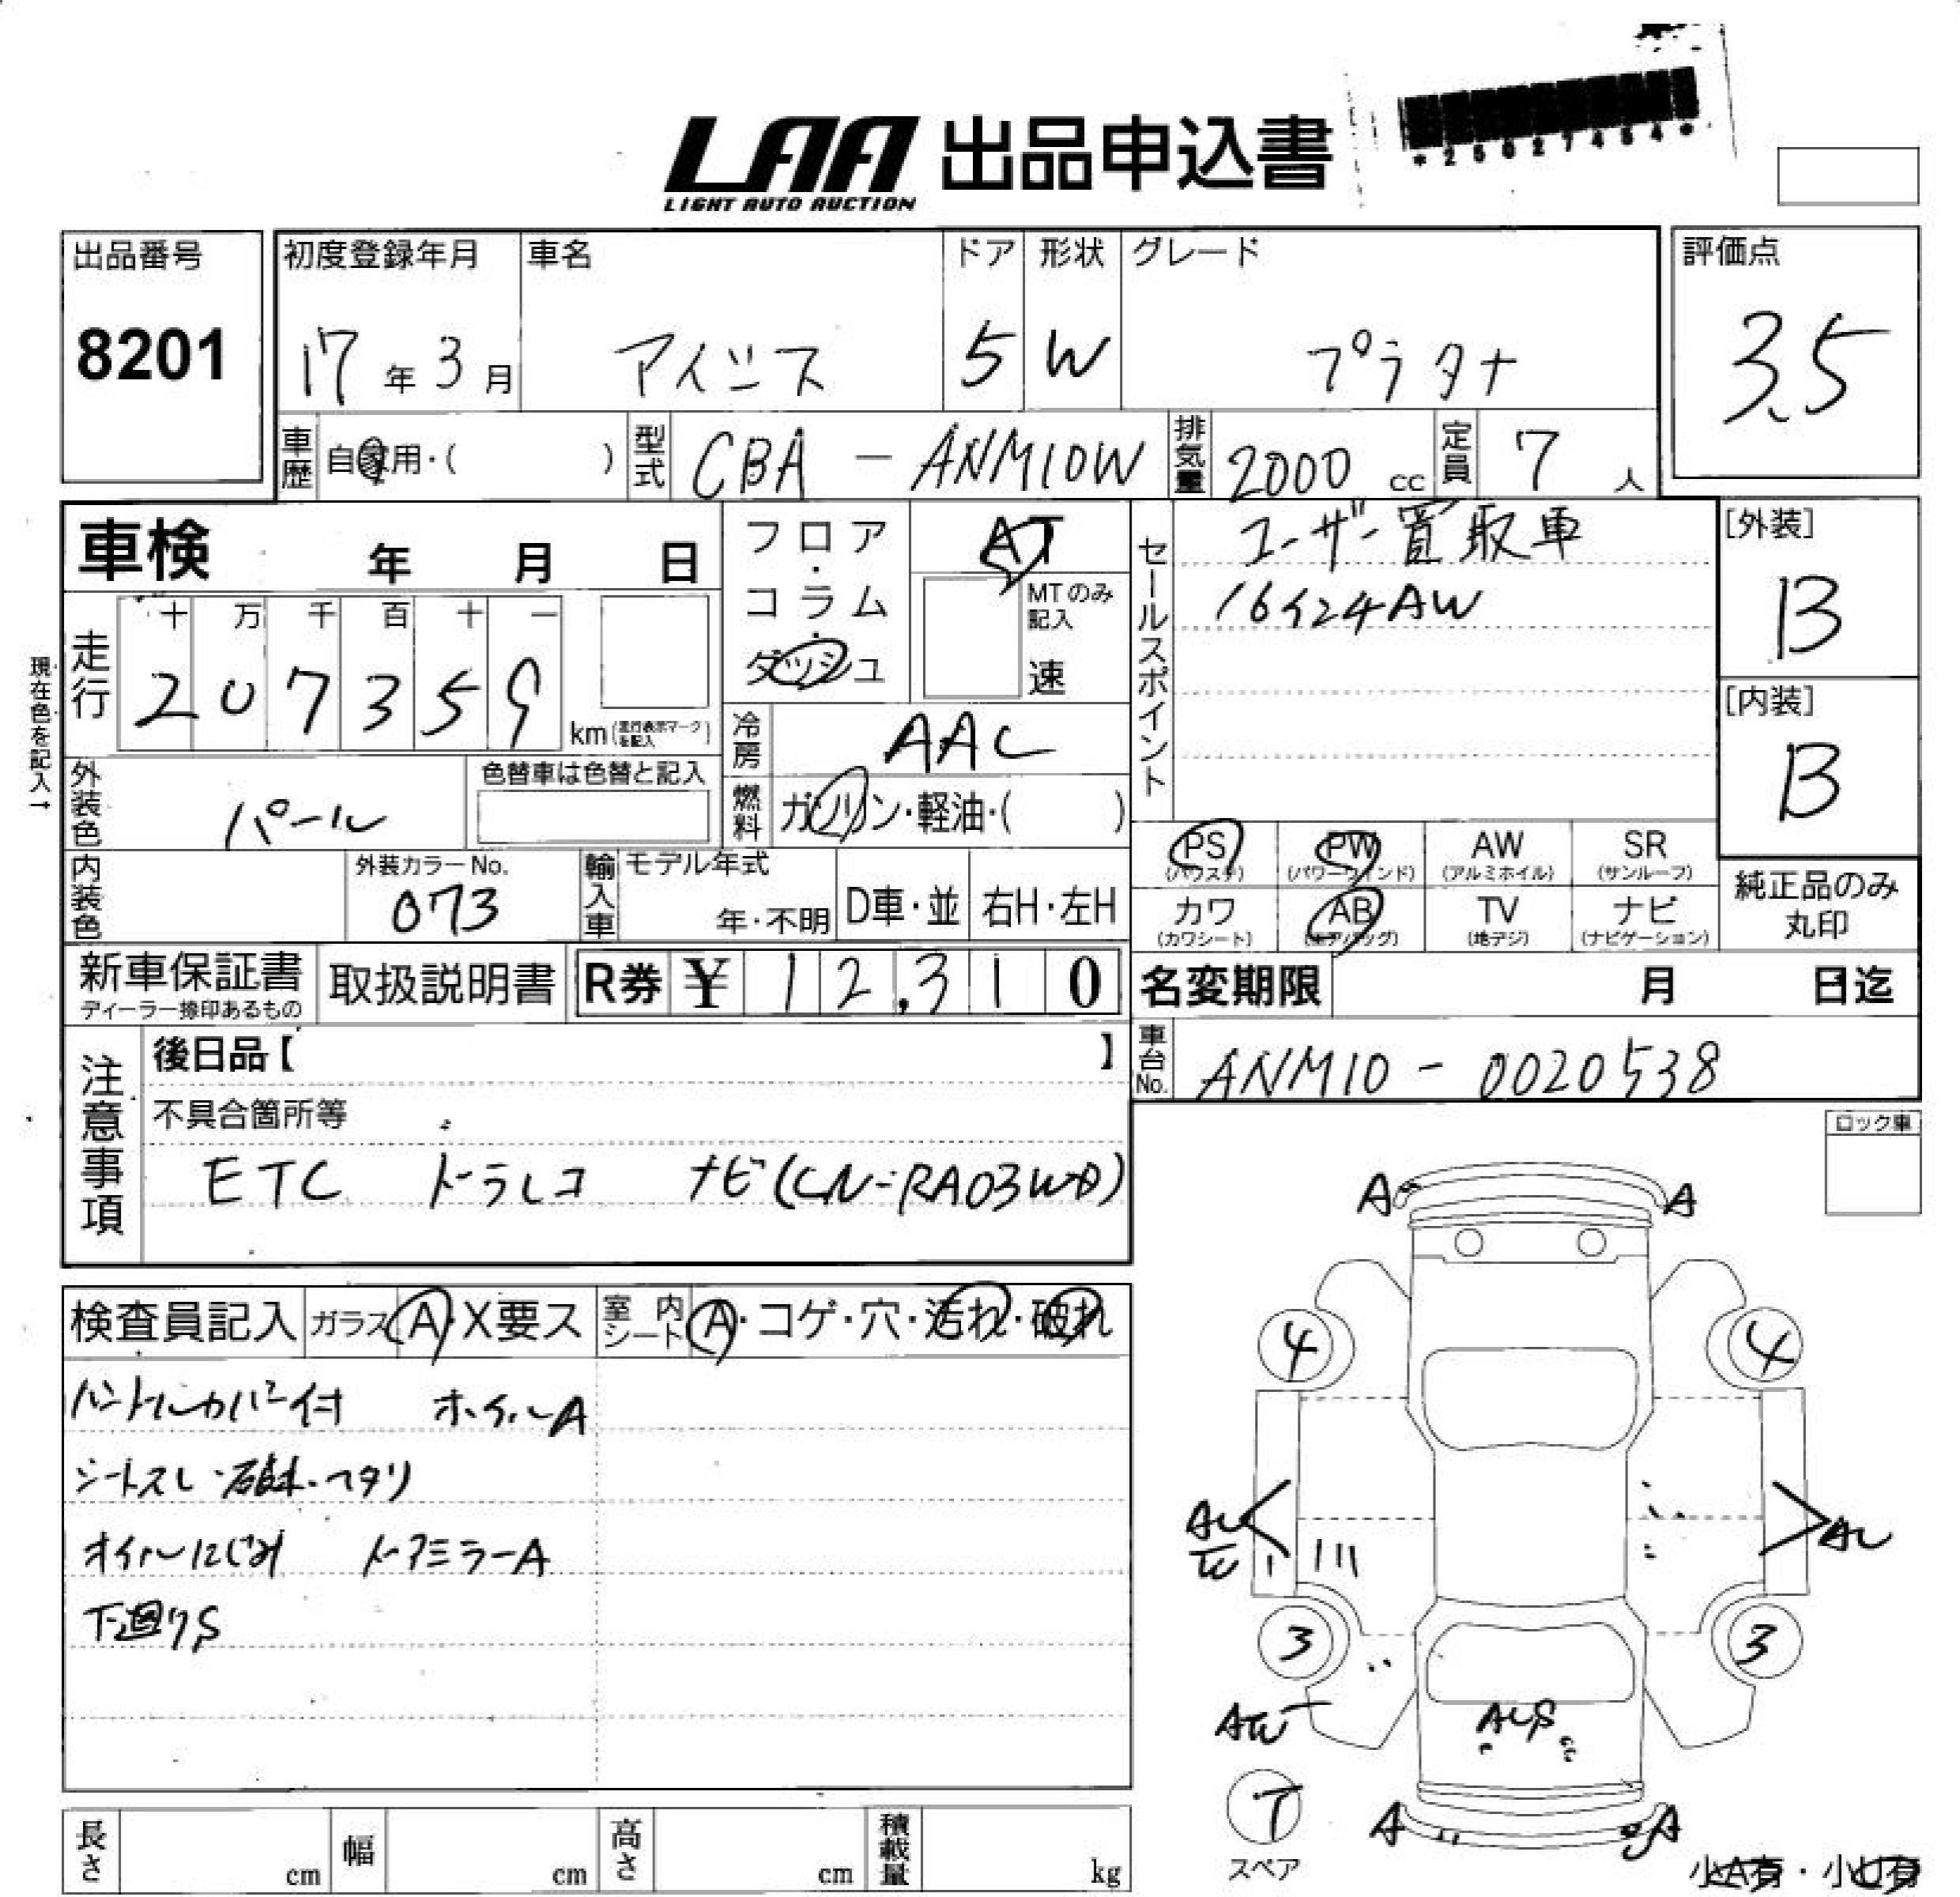 LAA 出品申込書
LIGHT AUTO AUCTION
*25027454*
出品番号
8201
初度登録年月
17年3月
車名
アイシス
ドア
5
形状
W
グレード
プラタナ
評価点
3.5
車歴 自家用・( )
型式 CBA-ANM10W
排気量 2000 cc
定員 7 人
車検 年 月 日
フロア・コラム・ダッシュ
AT
MTのみ記入
速
セールスポイント
ユーザー買取車
16インチAW
[外装]
B
[内装]
B
現在色を記入→
走行
十 万 千 百 十 一
2 0 7 3 5 9
km(走行表示マークを記入)
冷房 AAC
燃料 ガソリン・軽油・( )
外装色 パール
色替車は色替と記入
内装色
外装カラーNo.
073
輸入車
モデル年式
年・不明
D車・並
右H・左H
PS
(パワステ)
PW
(パワーウインド)
AW
(アルミホイル)
SR
(サンルーフ)
カワ
(カワシート)
AB
(エアバッグ)
TV
(地デジ)
ナビ
(ナビゲーション)
純正品のみ
丸印
新車保証書
ディーラー捺印あるもの
取扱説明書
R券 ¥ 12,310
名変期限 月 日迄
車台No. ANM10-0020538
注意事項
後日品【 】
不具合箇所等
ETC ドラレコ ナビ(CN-RA03WD)
ロック車
検査員記入
ガラス A・X要ス
室内シート A・コゲ・穴・汚れ・破れ
ハンドルカバー付 ホイルA
シートスレ・破れ・ヘタリ
オイルにじみ ドアミラーA
下廻りS
A A
4 4
AU
AU
W
3 3
AW
AUS
T
スペア
A A
小A有・小U有
長さ cm
幅 cm
高さ cm
積載量 kg